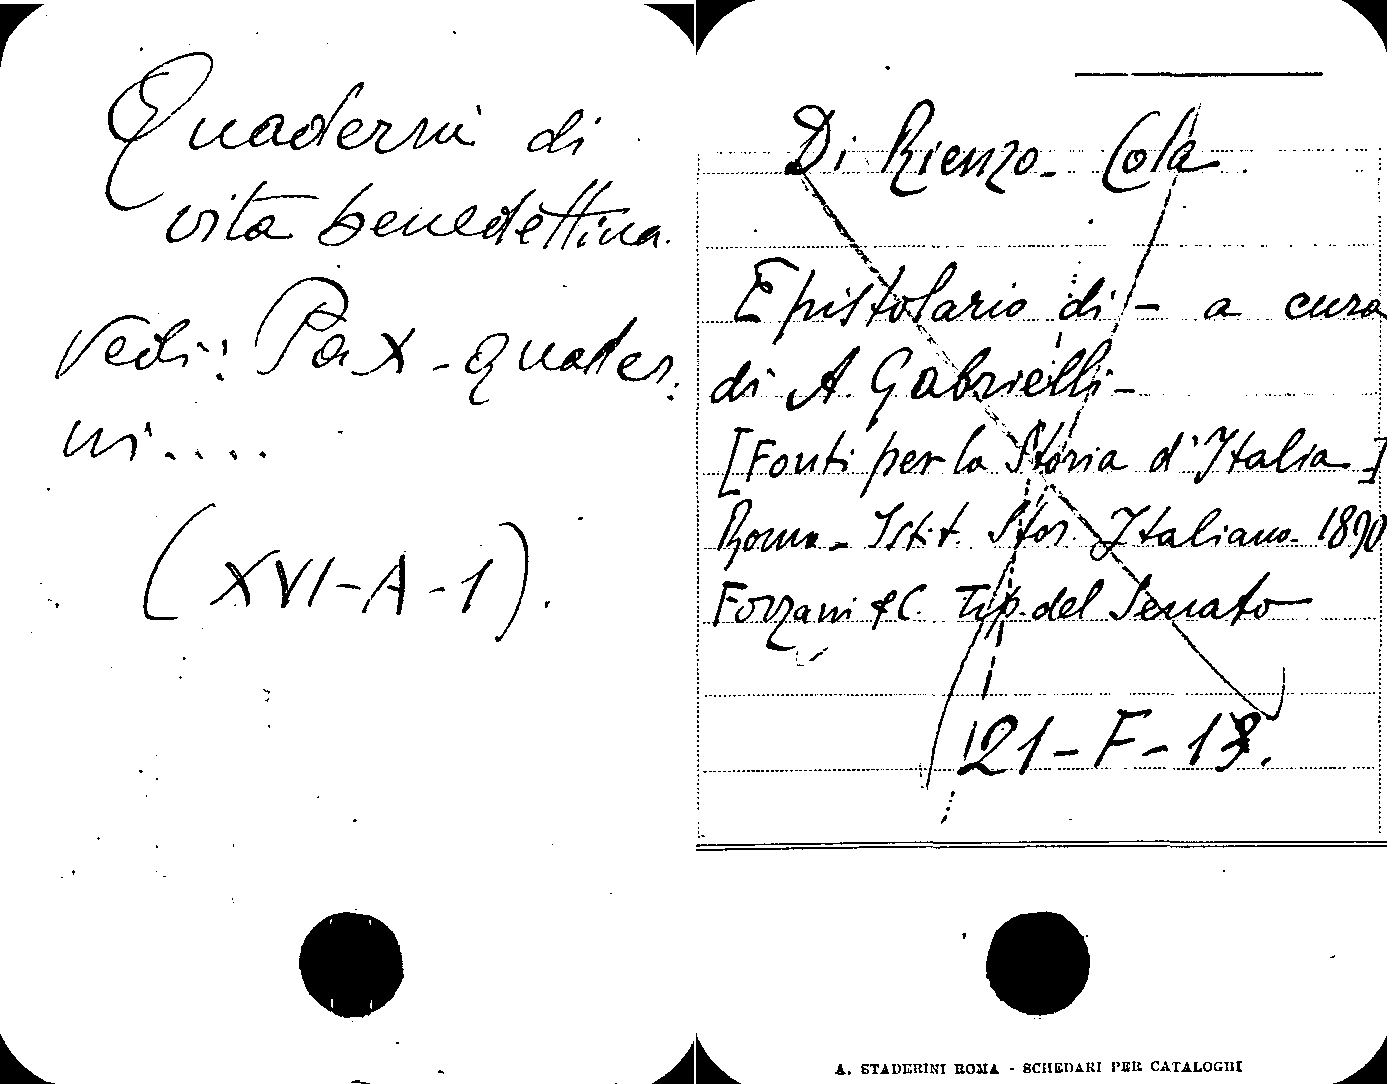 Quaderni di
vita benedettina.
Vedi: Pax - quader
ni....
(XVI-A-1).
Di Rienzo - Cola
Epistolario di - a cura
di A. Gabrielli -
[Fonti per la Storia d'Italia]
Roma - Istit. Stor. Italiano - 1890
Forzani & C. Tip. del Senato
21-F-13.
A. STADERINI ROMA - SCHEDARI PER CATALOGHI